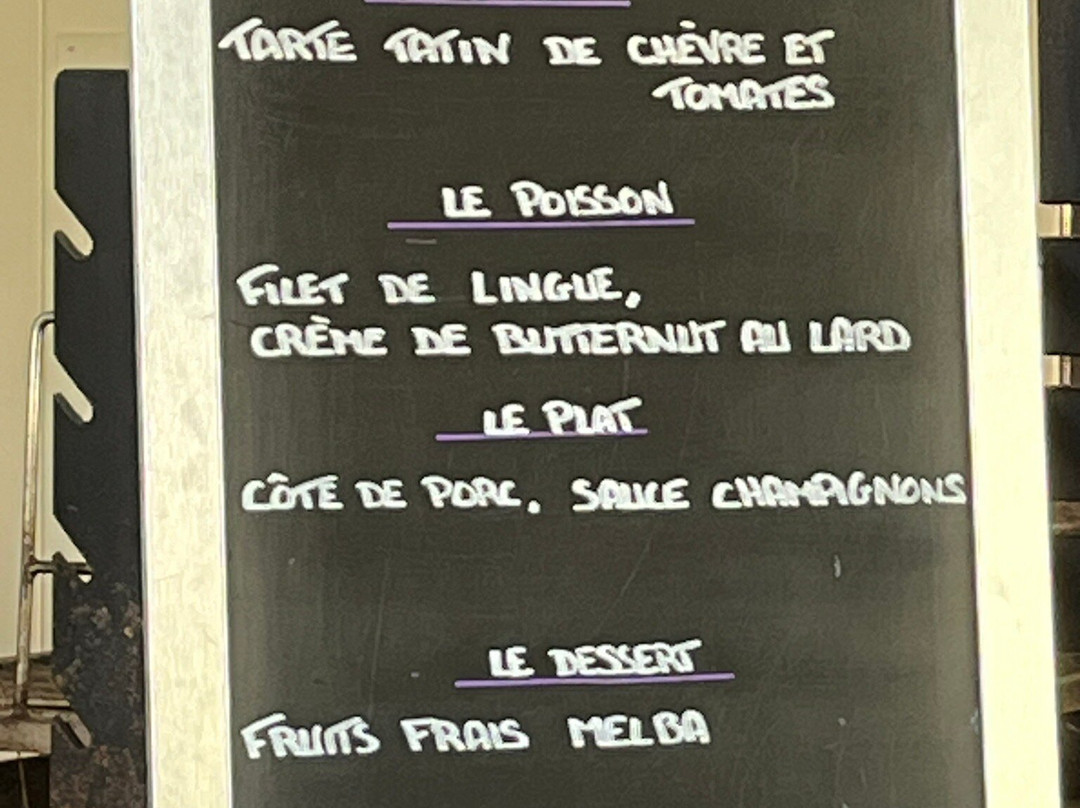 TARTE TATIN DE CHÈVRE ET
TOMATES
LE POISSON
FILET DE LINGUE,
CRÈME DE BUTTERNUT AU LARD
LE PLAT
CÔTE DE PORC, SAUCE CHAMPAGNONS
LE DESSERT
FRUITS FRAIS MELBA